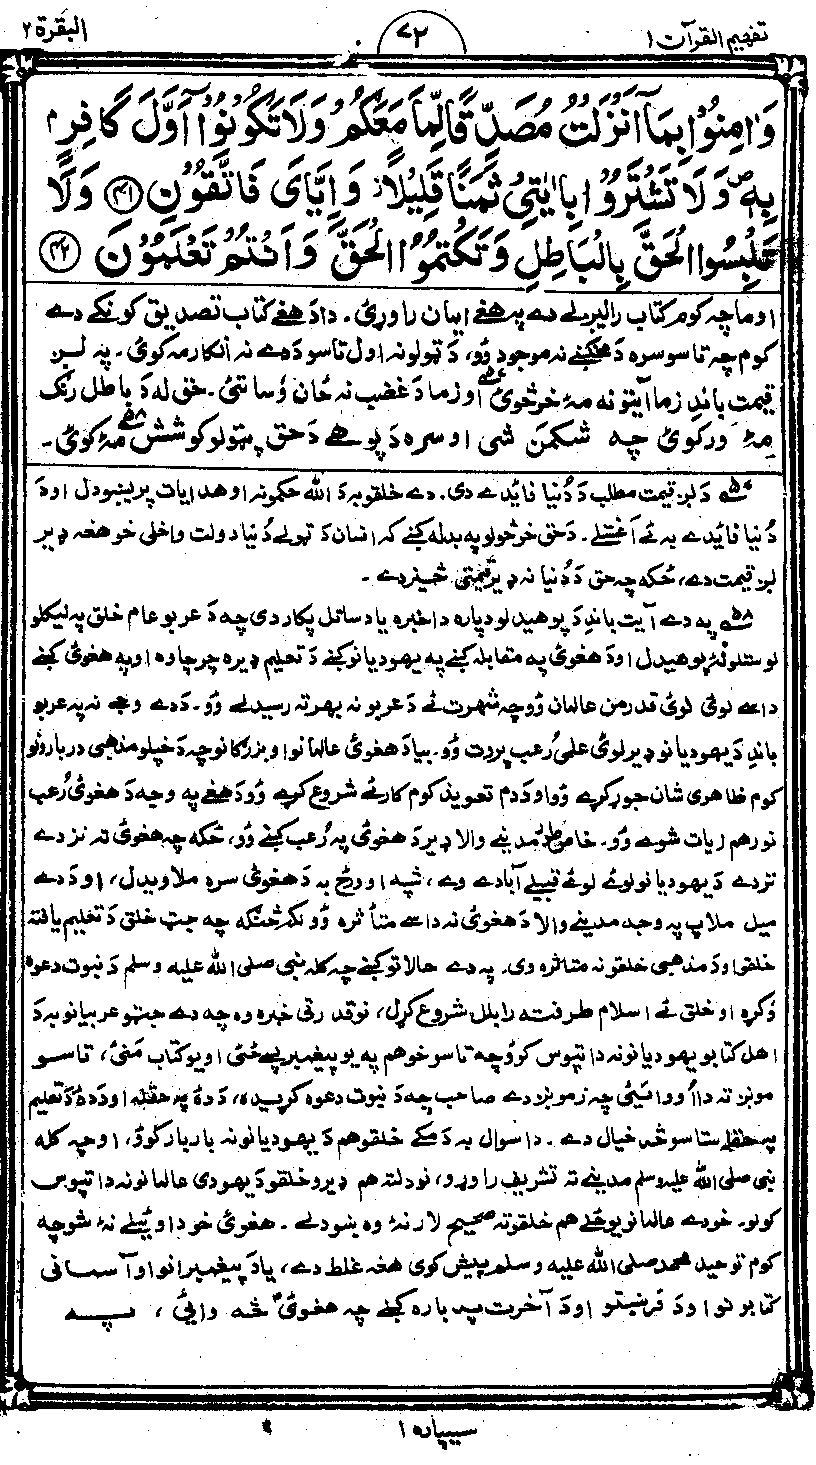 تفهیم القرآن ۱
۷۲
البقرة ۲
وَاٰمِنُوۡا بِمَآ اَنۡزَلۡتُ مُصَدِّقًا لِّمَا مَعَكُمۡ وَلَا تَكُوۡنُوۡٓا اَوَّلَ كَافِرٍۭ
بِهٖ ۖ وَلَا تَشۡتَرُوۡا بِاٰيٰتِىۡ ثَمَنًا قَلِيۡلًا ؗ وَاِيَّاىَ فَاتَّقُوۡنِ ﴿۴۱﴾ وَلَا
تَلۡبِسُوا الۡحَقَّ بِالۡبَاطِلِ وَتَكۡتُمُوا الۡحَقَّ وَاَنۡتُمۡ تَعۡلَمُوۡنَ ﴿۴۲﴾
او ما چه کوم کتاب رالیږلے دے په هغے ایمان راوړئ. دا د هغے کتاب تصدیق کونکے دے
کوم چه تاسو سره د مخکښے نه موجود وُو، د ټولو نه اول تاسو د دے نه انکار مه کوئ. په لږ
قیمت باندِ زما آیتونه مهٔ خرڅوئ او زما د غضب نه ځان وُساتئ. حق له د باطل رنګ
مهٔ ورکوئ چه شکمن شی او سره د پوهے د حق پټولو کوشش مهٔ کوئ.
۵۷ د لږ قیمت مطلب د دُنیا فائدے دی. دے خلقو به د الله حکمونه او هدایات پریښودل او د
دُنیا فائدے به ئے آغستلے. د حق خرڅولو په بدله کښے که انسان د ټولے دُنیا دولت واخلی خو هغه ډیر
لږ قیمت دے، ځکه چه حق د دُنیا نه ډیر قیمتی څیز دے.
۵۸ په دے آیت باندِ د پوهیدلو دپاره دا خبره یاد ساتل پکار دی چه د عربو عام خلق په لیکلو
لوستلو نهٔ پوهیدل او د هغوئ په مقابله کښے په یهودیانو کښے د تعلیم ډیره چرچا وه او په هغوئ کښے
داسے لوئی لوئی قدرمن عالمان وُو چه شهرت ئے د عربو نه بهر ته رسیدلے وُو. د دے وجے نه په عربو
باندِ د یهودیانو ډیر لوئی علمی رُعب پروت وُو. بیا د هغوئ عالمانو او بزرګانو چه د خپلو مذهبی دربارونو
کوم ظاهری شان جوړ کړے وُو او د دم تعویذ کوم کار ئے شروع کړے وُو د هغے په وجه د هغوئ رُعب
نور هم زیات شوے وُو. خاص طور مدینے والا ډیر د هغوئ په رُعب کښے وُو، ځکه چه هغوئ ته نزدے
نزدے د یهودیانو لوئے لوئے قبیلے آبادے وے، شپه او ورځ به د هغوئ سره ملاویدل، او د دے
میل ملاپ په وجه مدینے والا د هغوئ نه داسے متأثره وُو لکه څنګه چه جټ خلق د تعلیم یافته
خلقو او د مذهبی خلقو نه متاثره وی. په دے حالاتو کښے چه کله نبی صلی الله علیه وسلم د نبوت دعوه
وُکړه او خلق ئے اسلام طرفته رابلل شروع کړل، نو قدرتی خبره وه چه دے جټو عربیانو به د
اهل کتابو یهودیانو نه دا تپوس کوُو چه تاسو خو هم په یو پیغمبر پسے ځئ او یو کتاب منئ، تاسو
مونږ ته دا اُووائیئ چه زمونږ دے صاحب چه د نبوت دعوه کړیده، د دهٔ په حقله او د دهٔ د تعلیم
په حقله ستاسو څه خیال دے. دا سوال به د مکے خلقو هم د یهودیانو نه بار بار کوُو، او چه کله
نبی صلی الله علیه وسلم مدینے ته تشریف راوړو، نو دلته هم ډیرو خلقو د یهودی عالمانو نه دا تپوس
کولو. خو دے عالمانو یو ځلے هم خلقو ته صحیح لار نهٔ وه ښودلے. هغوئ خو دا وئیلے نهٔ شو چه
کوم توحید محمد صلی الله علیه وسلم پیش کوی هغه غلط دے، یا د پیغمبرانو او آسمانی
کتابونو او د فرښتو او د آخرت په باره کښے چه هغوئ څه وائی، په
سیپاره ۱